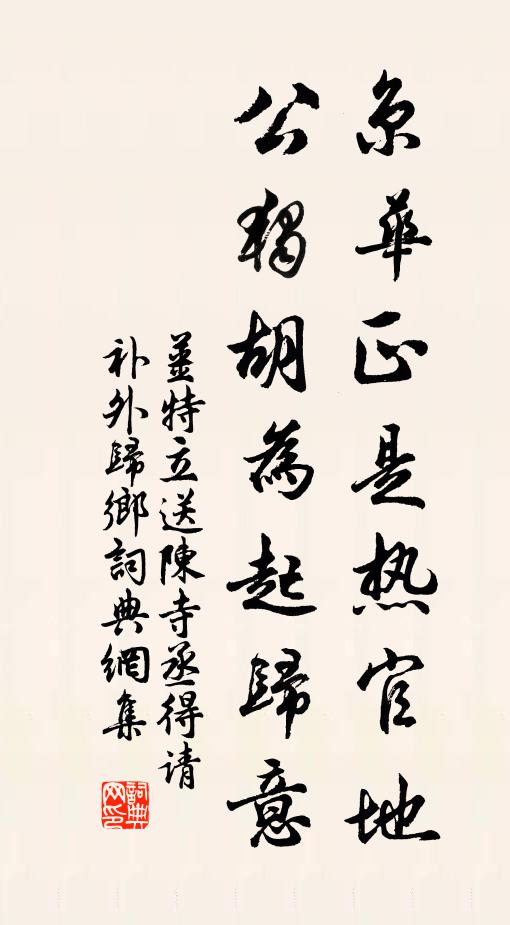 京華正是热官地
公獨胡為起歸意
薑特立送陳寺丞得请
补外歸鄉詞典網集
詞典网印